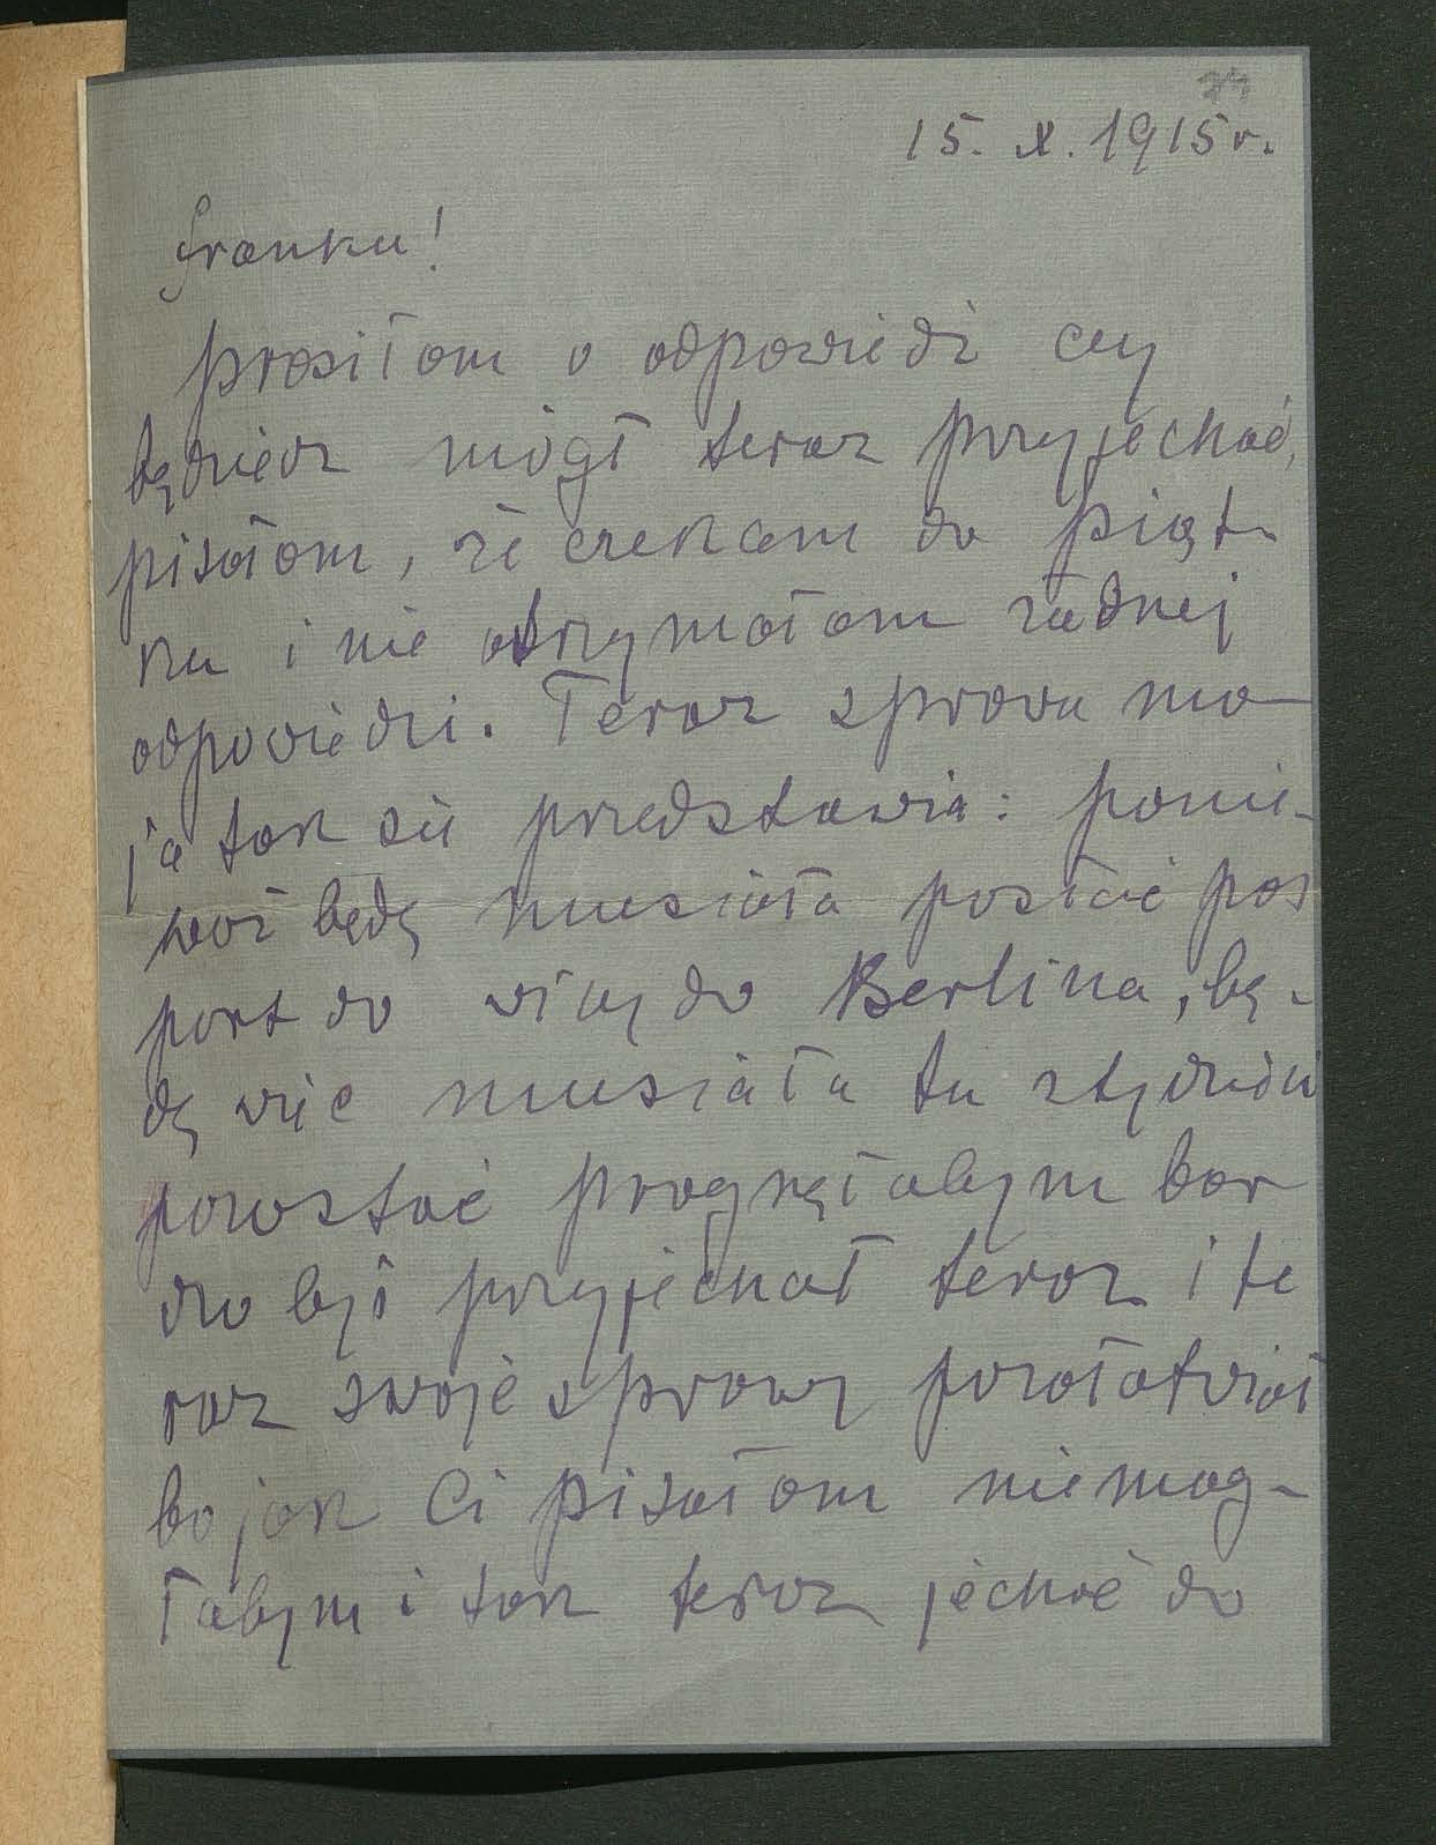 15. X. 1915 r.
Franku!
prosiłam o odpowiedź czy
będziesz mógł teraz przyjechać,
pisałam, że czekam do piąt-
ku i nie otrzymałam żadnej
odpowiedzi. Teraz sprawa mo
ja tak się przedstawia: ponie-
waż będę musiała posłać pas
port do wizy do Berlina, bę-
dę więc musiała tu z tydzień
pozostać pragnęłabym bar
dzo byś przyjechał teraz i te
raz swoje sprawy pozałatwiał
bo jak Ci pisałam nie mog-
łabym i tak teraz jechać do